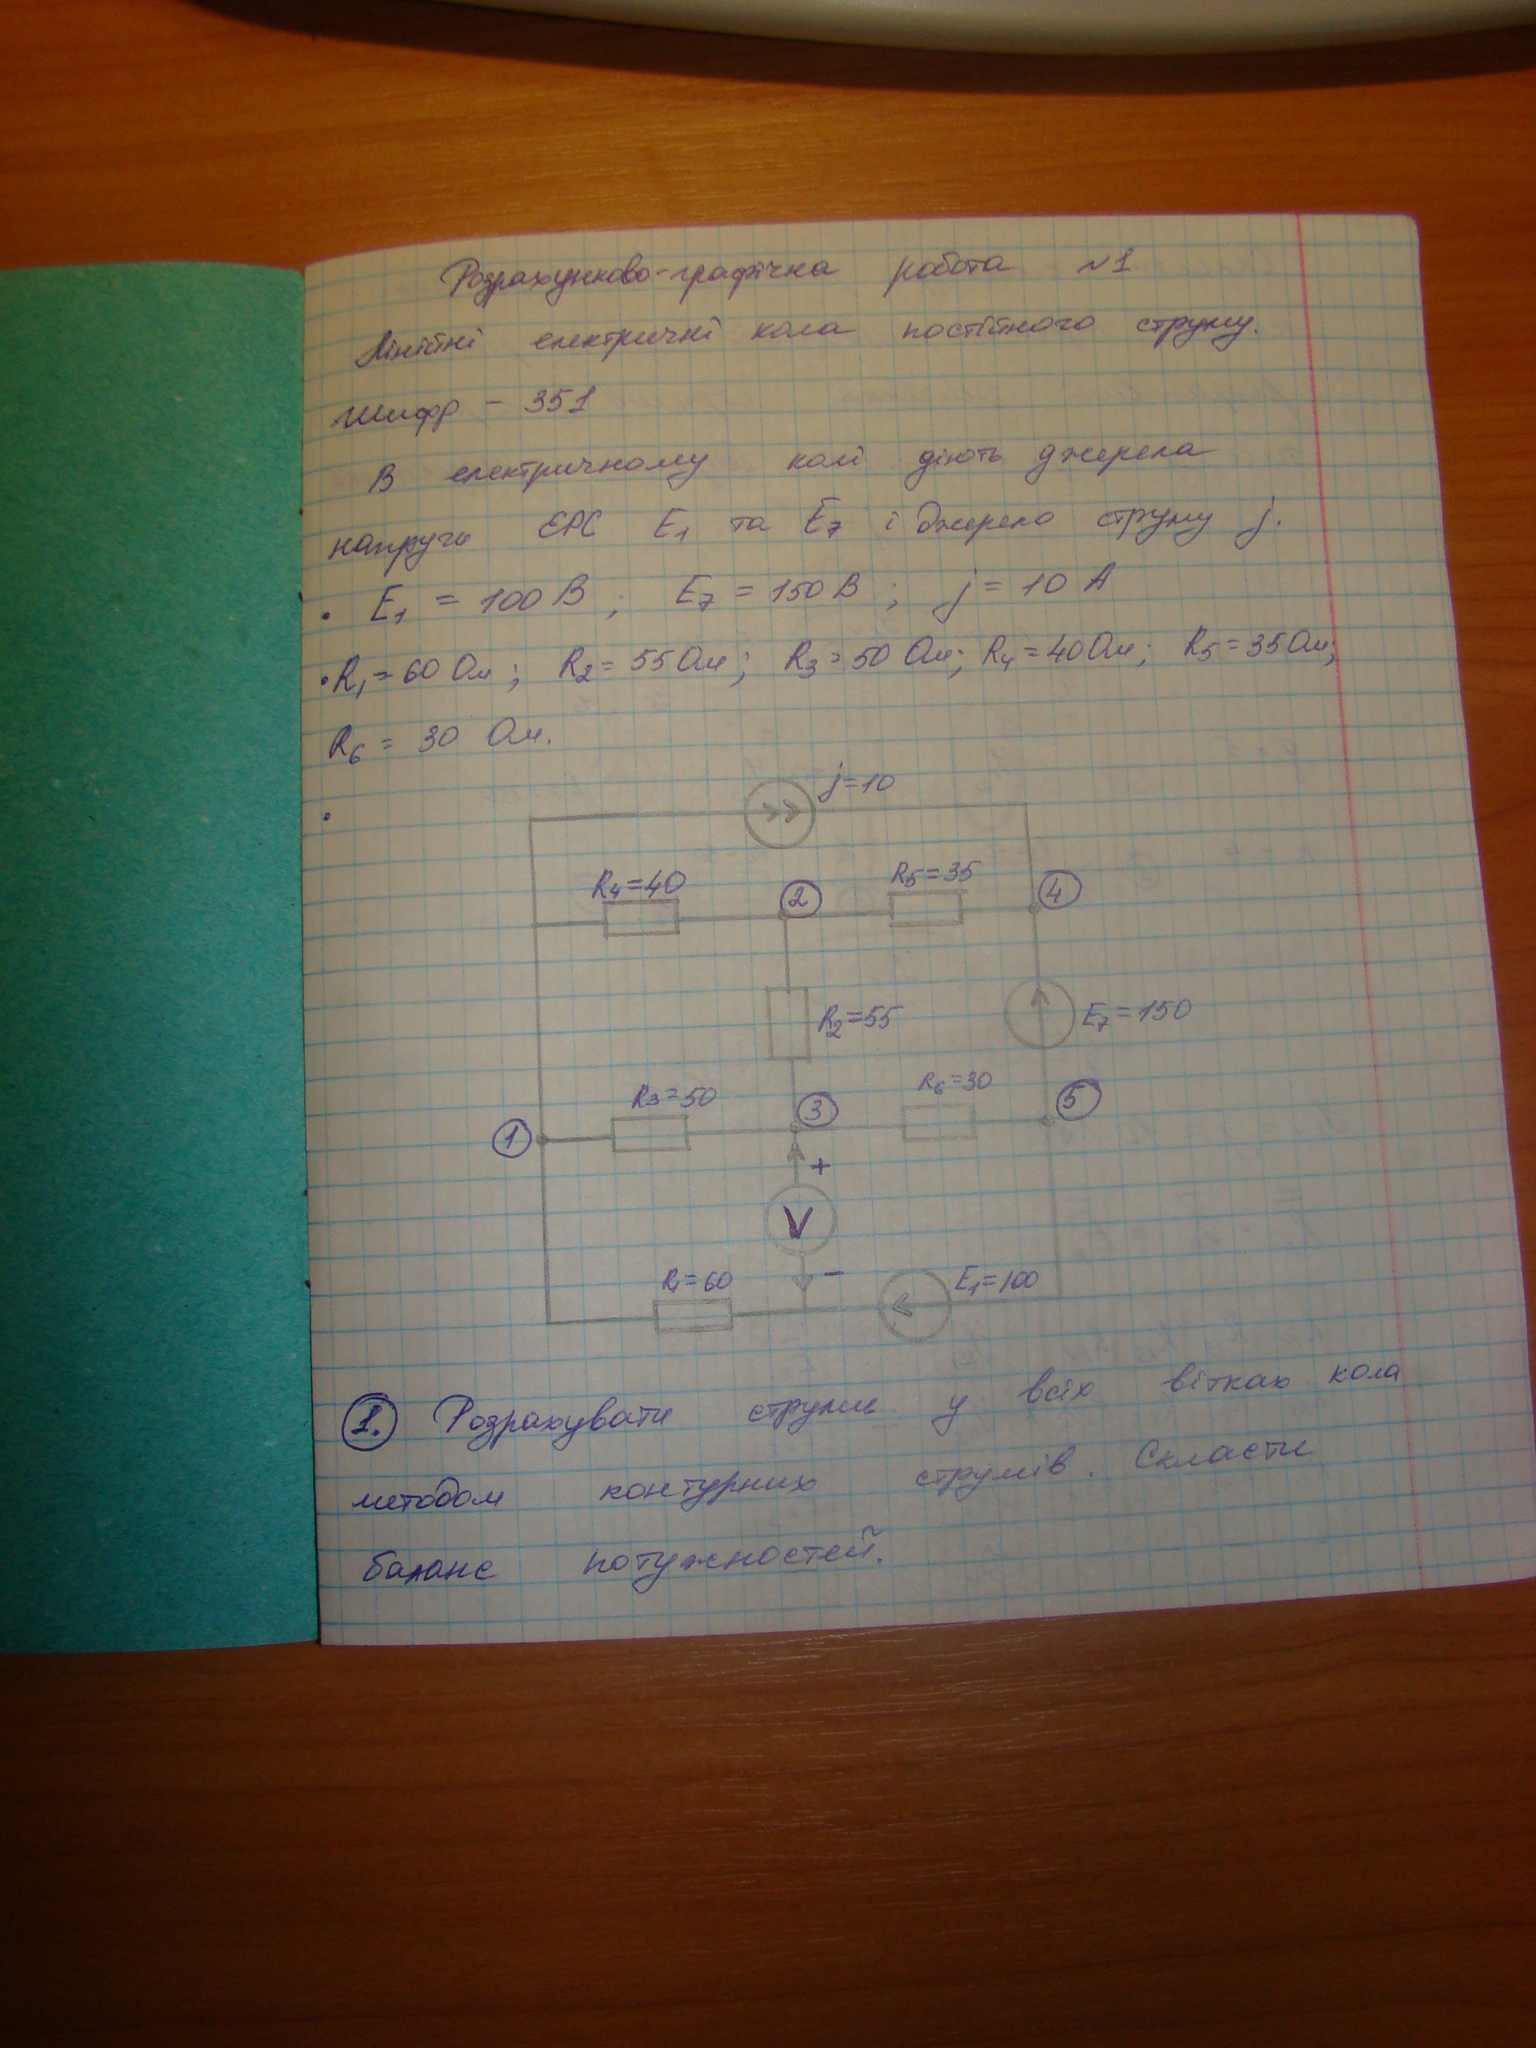 Розрахунково-графічна робота №1
Лінійні електричні кола постійного струму.
Шифр - 351
В електричному колі діють джерела
напруги ЕРС E1 та E7 і джерело струму j.
• E1 = 100 В ; E7 = 150 В ; j = 10 А
• R1 = 60 Ом ; R2 = 55 Ом ; R3 = 50 Ом ; R4 = 40 Ом ; R5 = 35 Ом ;
R6 = 30 Ом.
•
j=10
R4=40
2
R5=35
4
R2=55
E7=150
R3=50
3
R6=30
5
1
+
V
R1=60
-
E1=100
1. Розрахувати струми у всіх вітках кола
методом контурних струмів. Скласти
баланс потужностей.